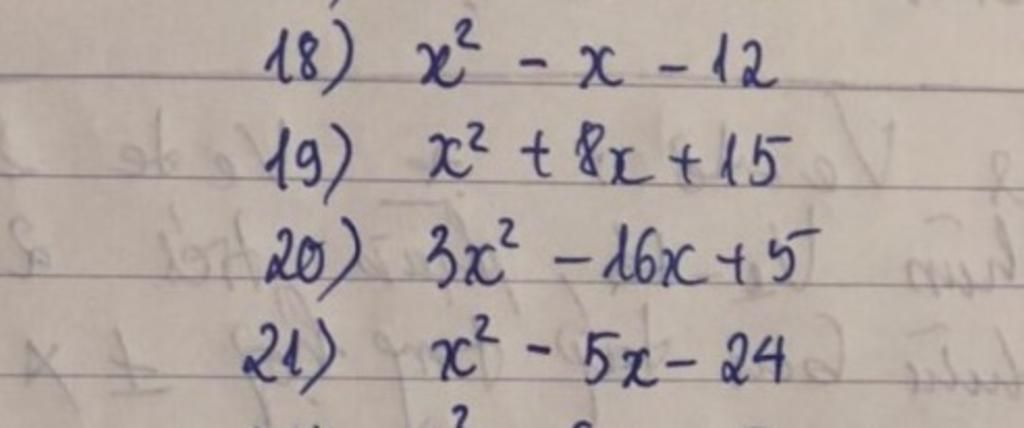 18) x² - x - 12
19) x² + 8x + 15
20) 3x² - 16x + 5
21) x² - 5x - 24